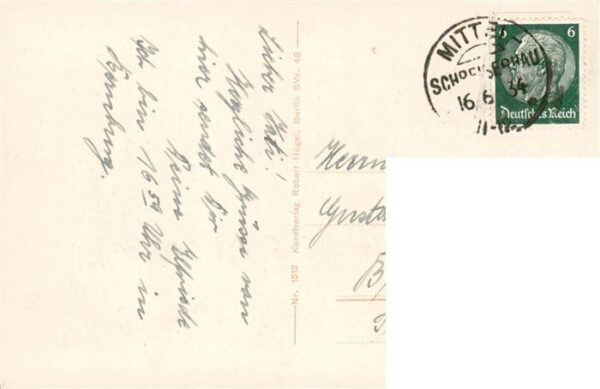 Lieber Vati!
Herzliche Grüsse von
hier sendet Dir
Deine Elfriede
Ich bin 16 54 Uhr in
Nr. 1512 Kunstverlag Robert Hügel, Berlin SW. 48
MITTEL-
SCHREIBERHAU
16.6.34
11-12
6 6
Deutsches Reich
Herrn
Gusta
B